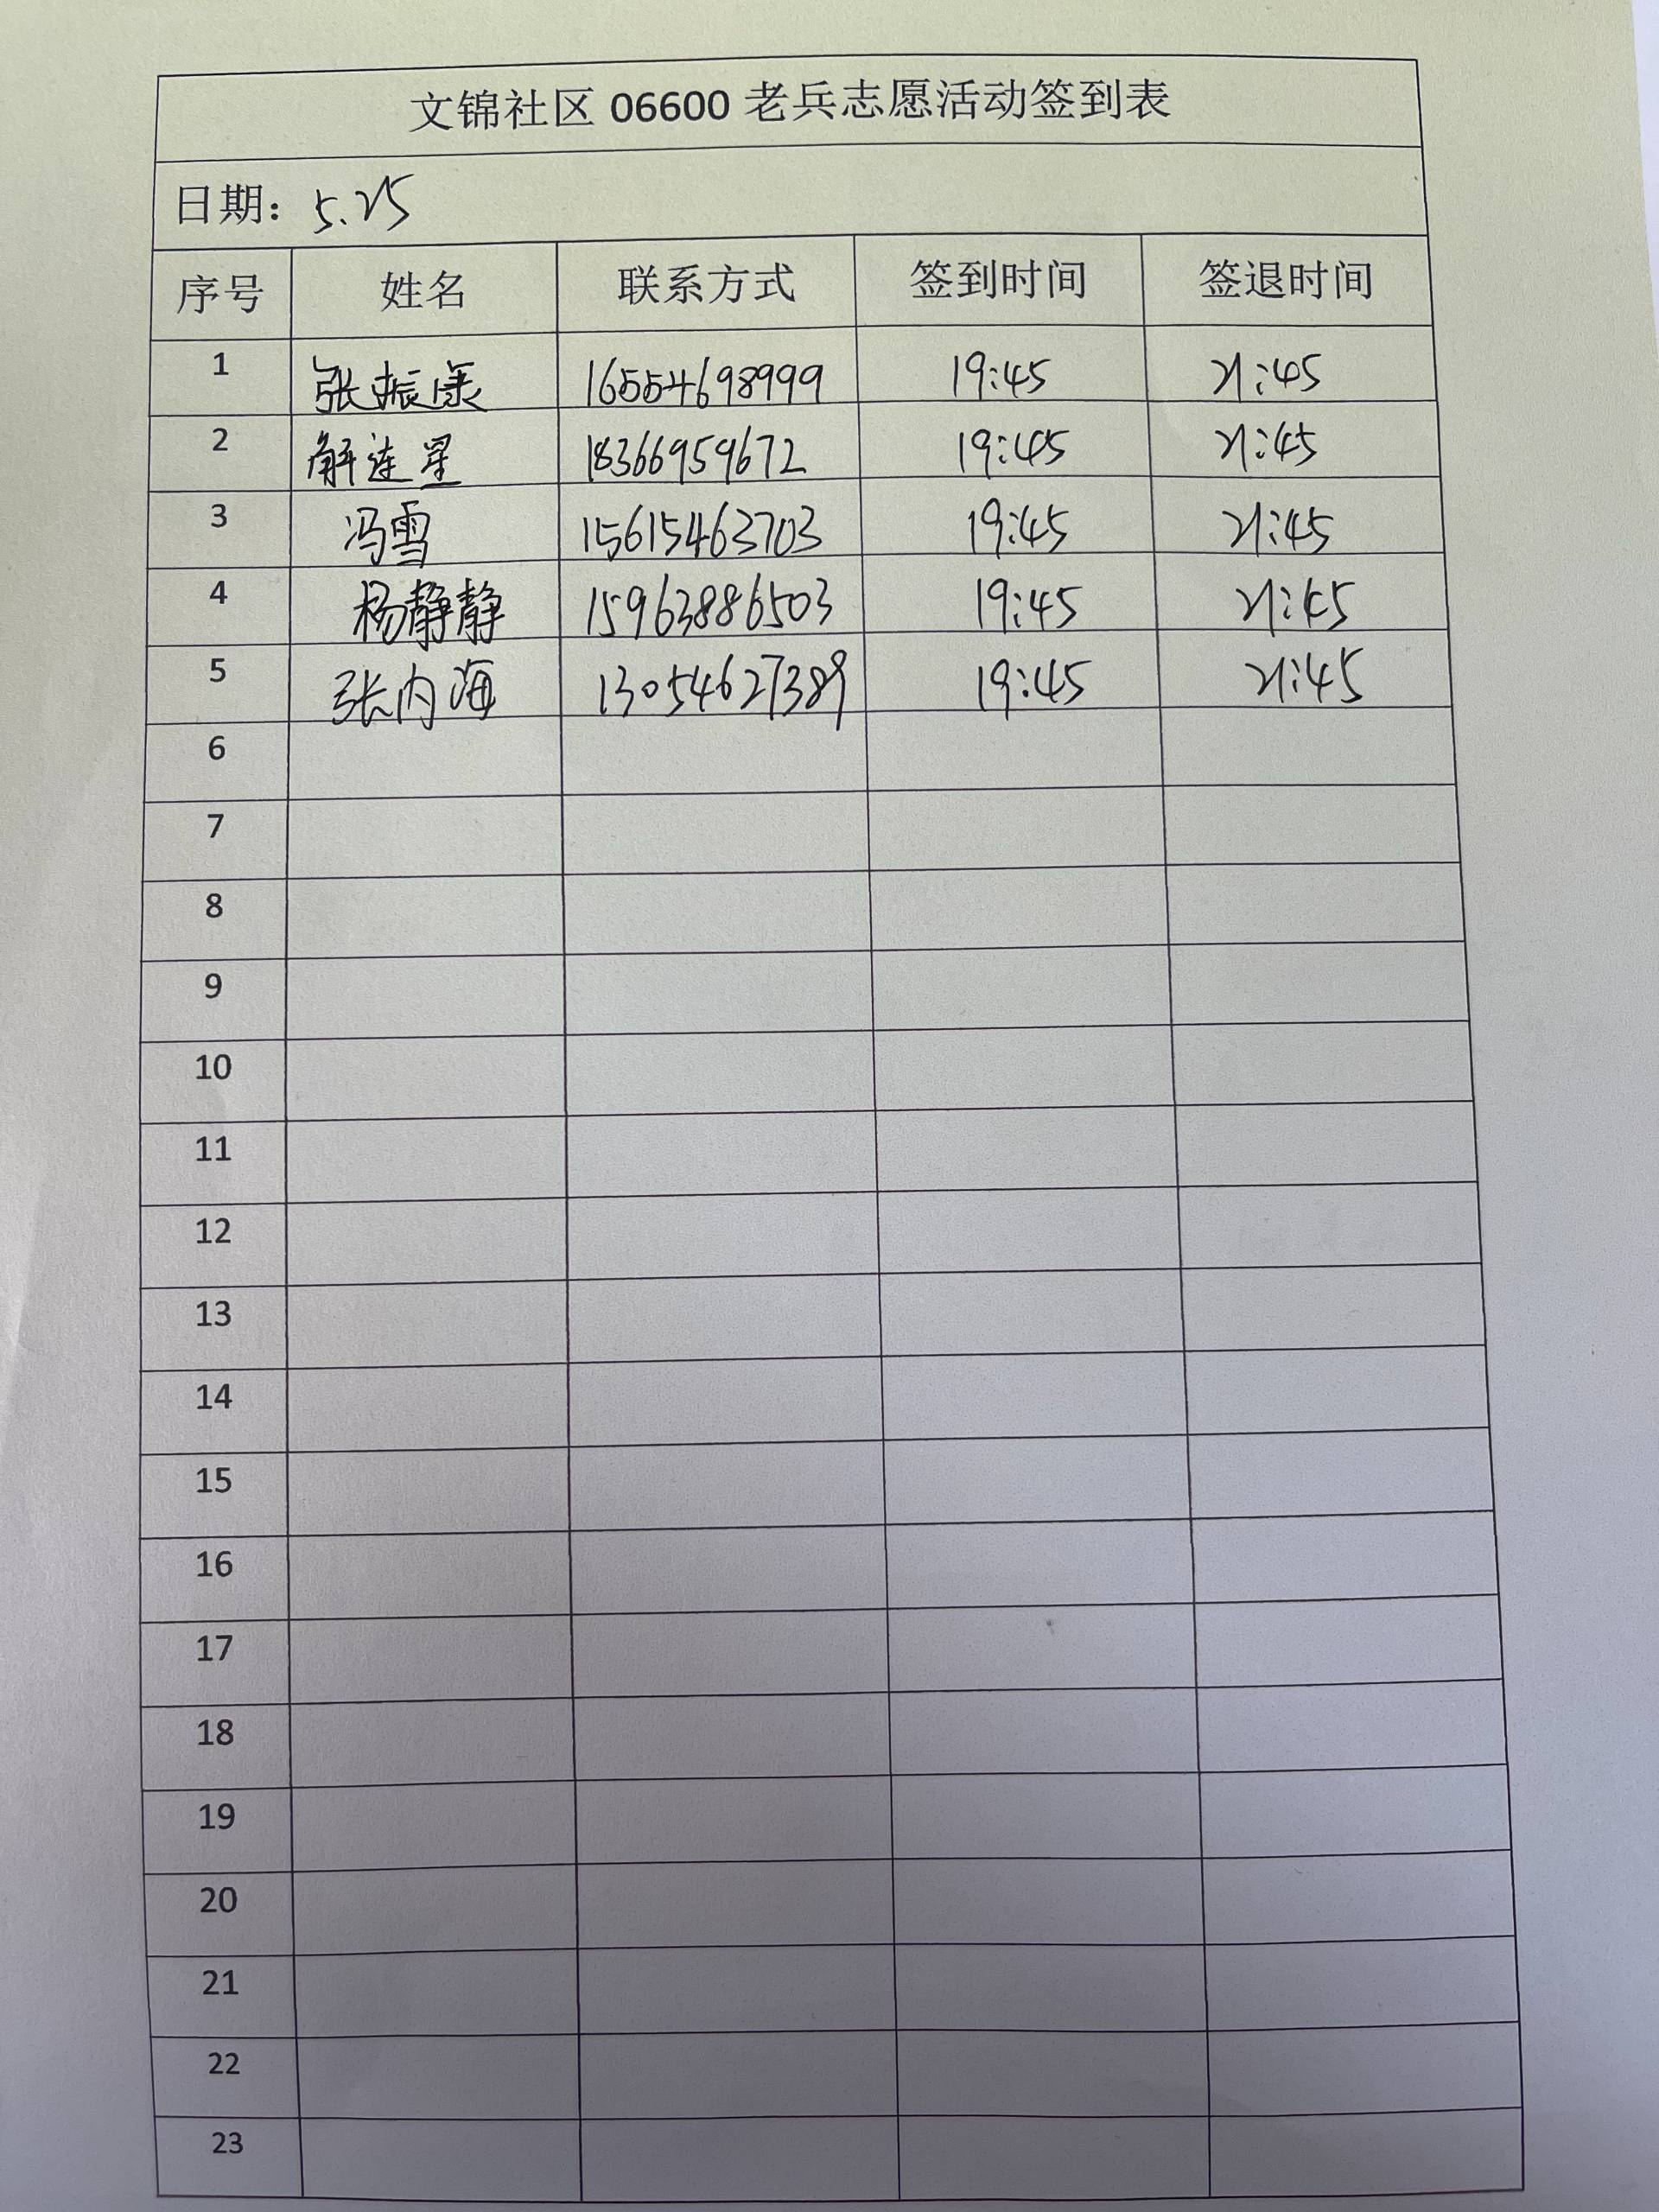 文锦社区 06600 老兵志愿活动签到表
日期: 5.25
序号 姓名 联系方式 签到时间 签退时间
1 张振康 16554698999 19:45 21:45
2 解连星 18366959672 19:45 21:45
3 冯雪 15615463703 19:45 21:45
4 杨静静 15963886503 19:45 21:45
5 张内海 13054627389 19:45 21:45
6
7
8
9
10
11
12
13
14
15
16
17
18
19
20
21
22
23